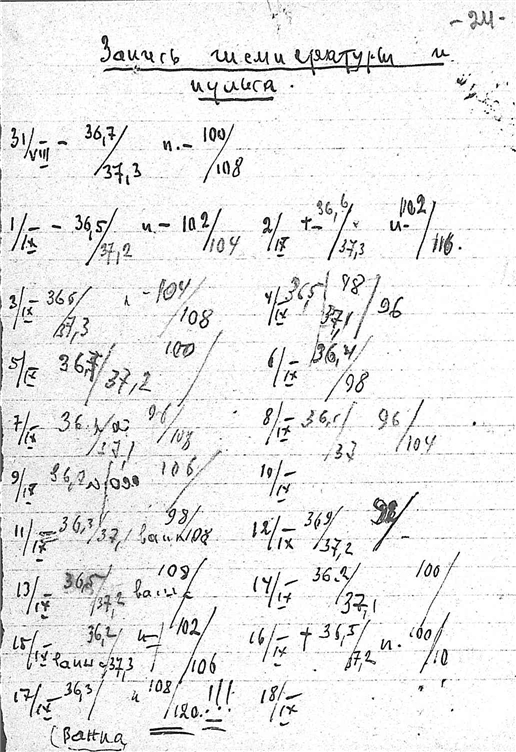 - 24 -
Запись температуры и
пульса.
31/VIII - 36,7/37,3 п. - 100/108
1/IX - 36,5/37,2 п. - 102/104 2/IX t - 36,6/37,3 п - 102/116.
3/IX 36,5/37,3 п - 104/108 4/IX 36,5/37,1 98/96
5/IX 37,2 100 6/IX 36,4/98
7/IX 37,1 96/108 8/IX 37 96/104
9/IX 36,2 106 10/IX
11/IX 36,3/37,1 ванна 98/108 12/IX 36,9/37,2 98/
13/IX 36,5/37,2 ванна 108/ 14/IX 36,2/37,1 100/
15/IX ванна 36,2/37,3 п 102/106 16/IX t 36,5/37,2 п. 100/10
17/IX 36,3/ п 108/120.!!! 18/IX " "
(Ванна